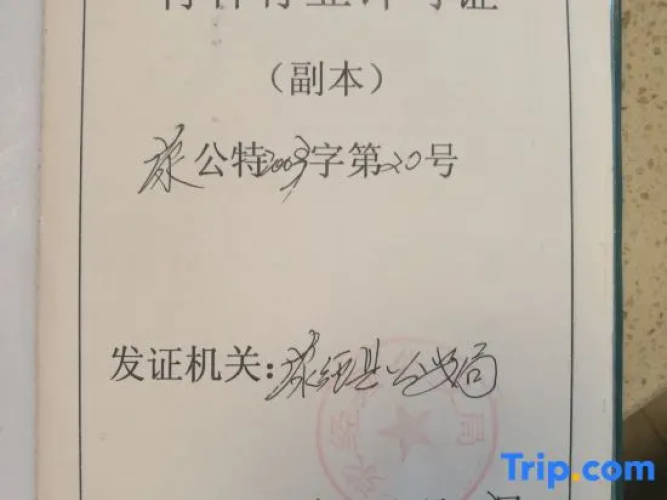 特种行业许可证
（副本）
荥公特2003字第20号
发证机关：荥经县公安局
Trip.com